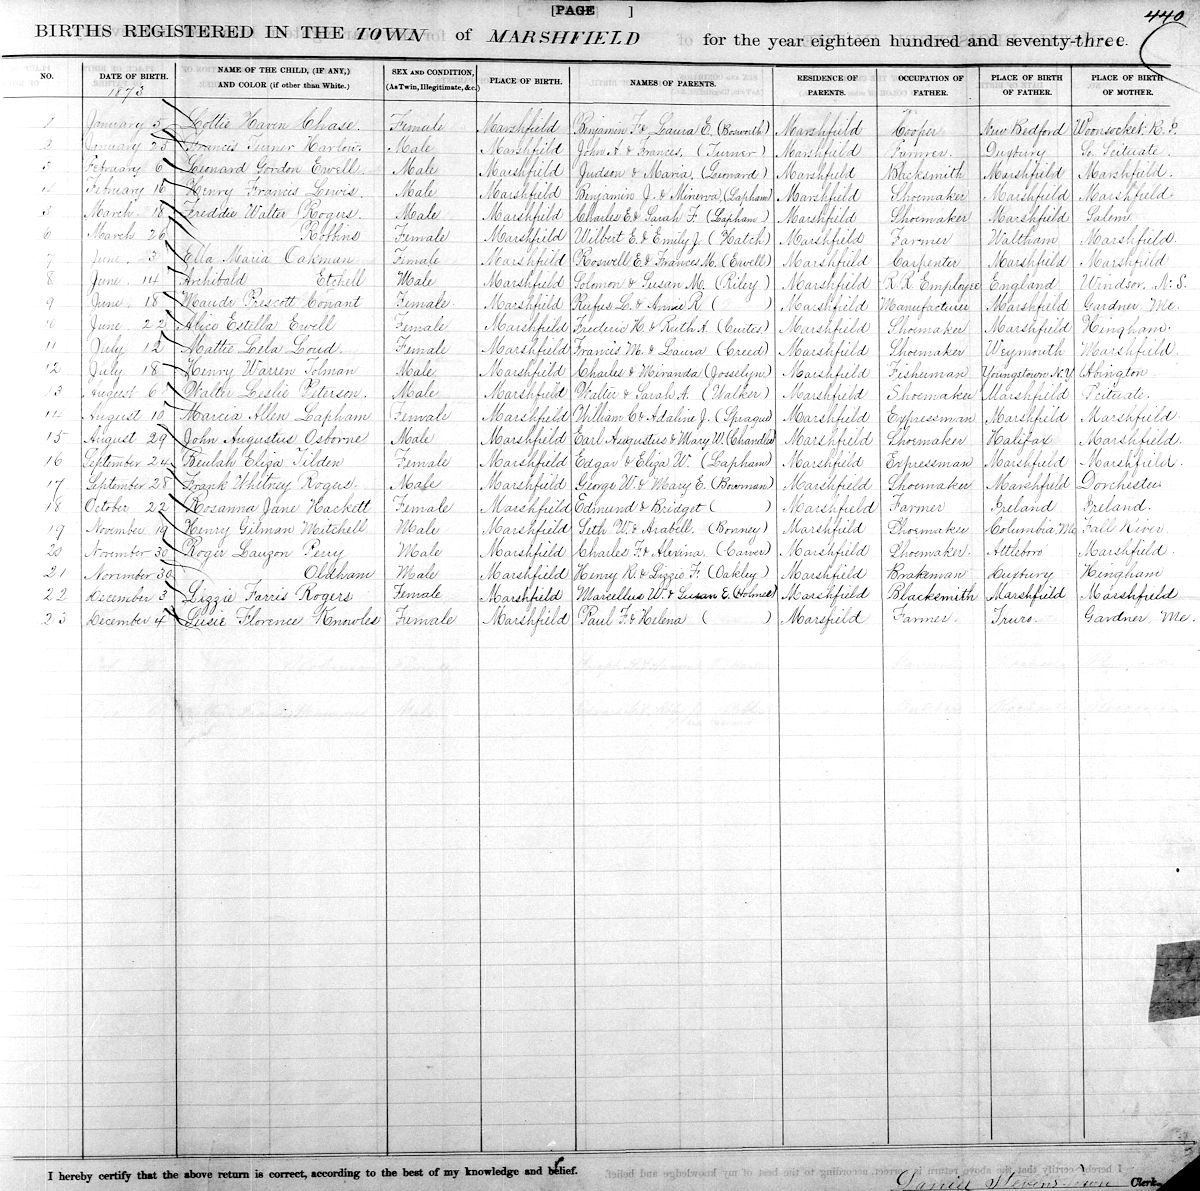 [PAGE ]
440
BIRTHS REGISTERED IN THE TOWN of MARSHFIELD for the year eighteen hundred and seventy-three.
NO. DATE OF BIRTH. NAME OF THE CHILD, (IF ANY,) AND COLOR (if other than White.) SEX AND CONDITION, (As Twin, Illegitimate, &c.) PLACE OF BIRTH. NAMES OF PARENTS. RESIDENCE OF PARENTS. OCCUPATION OF FATHER. PLACE OF BIRTH OF FATHER. PLACE OF BIRTH OF MOTHER.
1873
1 January 5 Lottie Haven Chase. Female Marshfield Benjamin F. & Laura E. (Bosworth) Marshfield Cooper New Bedford Woonsocket R. I.
2 January 25 Frances Turner Harlow. Male Marshfield John A. & Frances. (Turner) Marshfield Farmer Duxbury So. Scituate.
3 February 6 Leonard Gordon Ewell. Male Marshfield Judson & Maria. (Leonard) Marshfield Blacksmith Marshfield Marshfield.
4 February 16 Henry Francis Lewis. Male Marshfield Benjamin J. & Minerva (Lapham) Marshfield Shoemaker Marshfield Marshfield.
5 March 18 Freddie Walter Rogers. Male Marshfield Charles E. & Sarah F. (Lapham) Marshfield Shoemaker Marshfield Salem
6 March 26 Robbins Female Marshfield Wilbert E. & Emily J. (Hatch) Marshfield Farmer Waltham Marshfield.
7 June. 3 Ella Maria Oakman Female Marshfield Roswell E. & Frances M. (Ewell) Marshfield Carpenter Marshfield Marshfield
8 June. 14 Archibald Etchell Male Marshfield Solomon & Susan M. (Riley) Marshfield R. R. Employee England Windsor, N. S.
9 June. 18 Maude Prescott Conant Female Marshfield Rufus L. & Annie R. ( ) Marshfield Manufacturer Marshfield Gardner Me.
10 June 22 Alice Estella Ewell Female Marshfield Frederic H. & Ruth A. (Curtis) Marshfield Shoemaker Marshfield Hingham.
11 July 12 Mattie Lela Loud. Female Marshfield Francis M. & Laura (Creed) Marshfield Shoemaker Weymouth Marshfield.
12 July 18 Henry Warren Tolman Male Marshfield Charles & Miranda (Josselyn) Marshfield Fisherman Youngstown N. Y Abington.
13 August 6 Walter Leslie Peterson. Male Marshfield Walter & Sarah A. (Walker) Marshfield Shoemaker Marshfield Scituate.
14 August 10 Marcia Allen Lapham Female Marshfield William C. & Adaline J. (Sprague) Marshfield Expressman Marshfield Marshfield.
15 August 29 John Augustus Osborne Male Marshfield Earl Augustus & Mary W. (Chandler) Marshfield Shoemaker Halifax Marshfield.
16 September 24 Beulah Eliza Tilden Female Marshfield Edgar & Eliza W. (Lapham) Marshfield Expressman Marshfield Marshfield.
17 September 28 Frank Whitney Rogers. Male Marshfield George W. & Mary E. (Bowman) Marshfield Shoemaker Marshfield Dorchester
18 October 22 Rosanna Jane Hackett Female Marshfield Edmund & Bridget ( ) Marshfield Farmer Ireland Ireland.
19 November 19 Henry Gilman Mitchell Male Marshfield Seth W. & Arabell. (Bonney) Marshfield Shoemaker Columbia, Me Fall River
20 November 30 Roger Perry Male Marshfield Charles F. & Alexina. (Carver) Marshfield Shoemaker. Attleboro Marshfield.
21 November 30 Oldham Male Marshfield Henry R. & Lizzie F. (Oakley) Marshfield Brakeman Duxbury Hingham
22 December 3 Lizzie Farris Rogers Female Marshfield Marcellus W. & Susan E. (Holmes) Marshfield Blacksmith Marshfield Marshfield
23 December 4 Susie Florence Knowles Female Marshfield Paul F. & Helena ( ) Marsfield Farmer. Truro. Gardner, Me.
I hereby certify that the above return is correct, according to the best of my knowledge and belief.
Daniel Stevens Town Clerk.